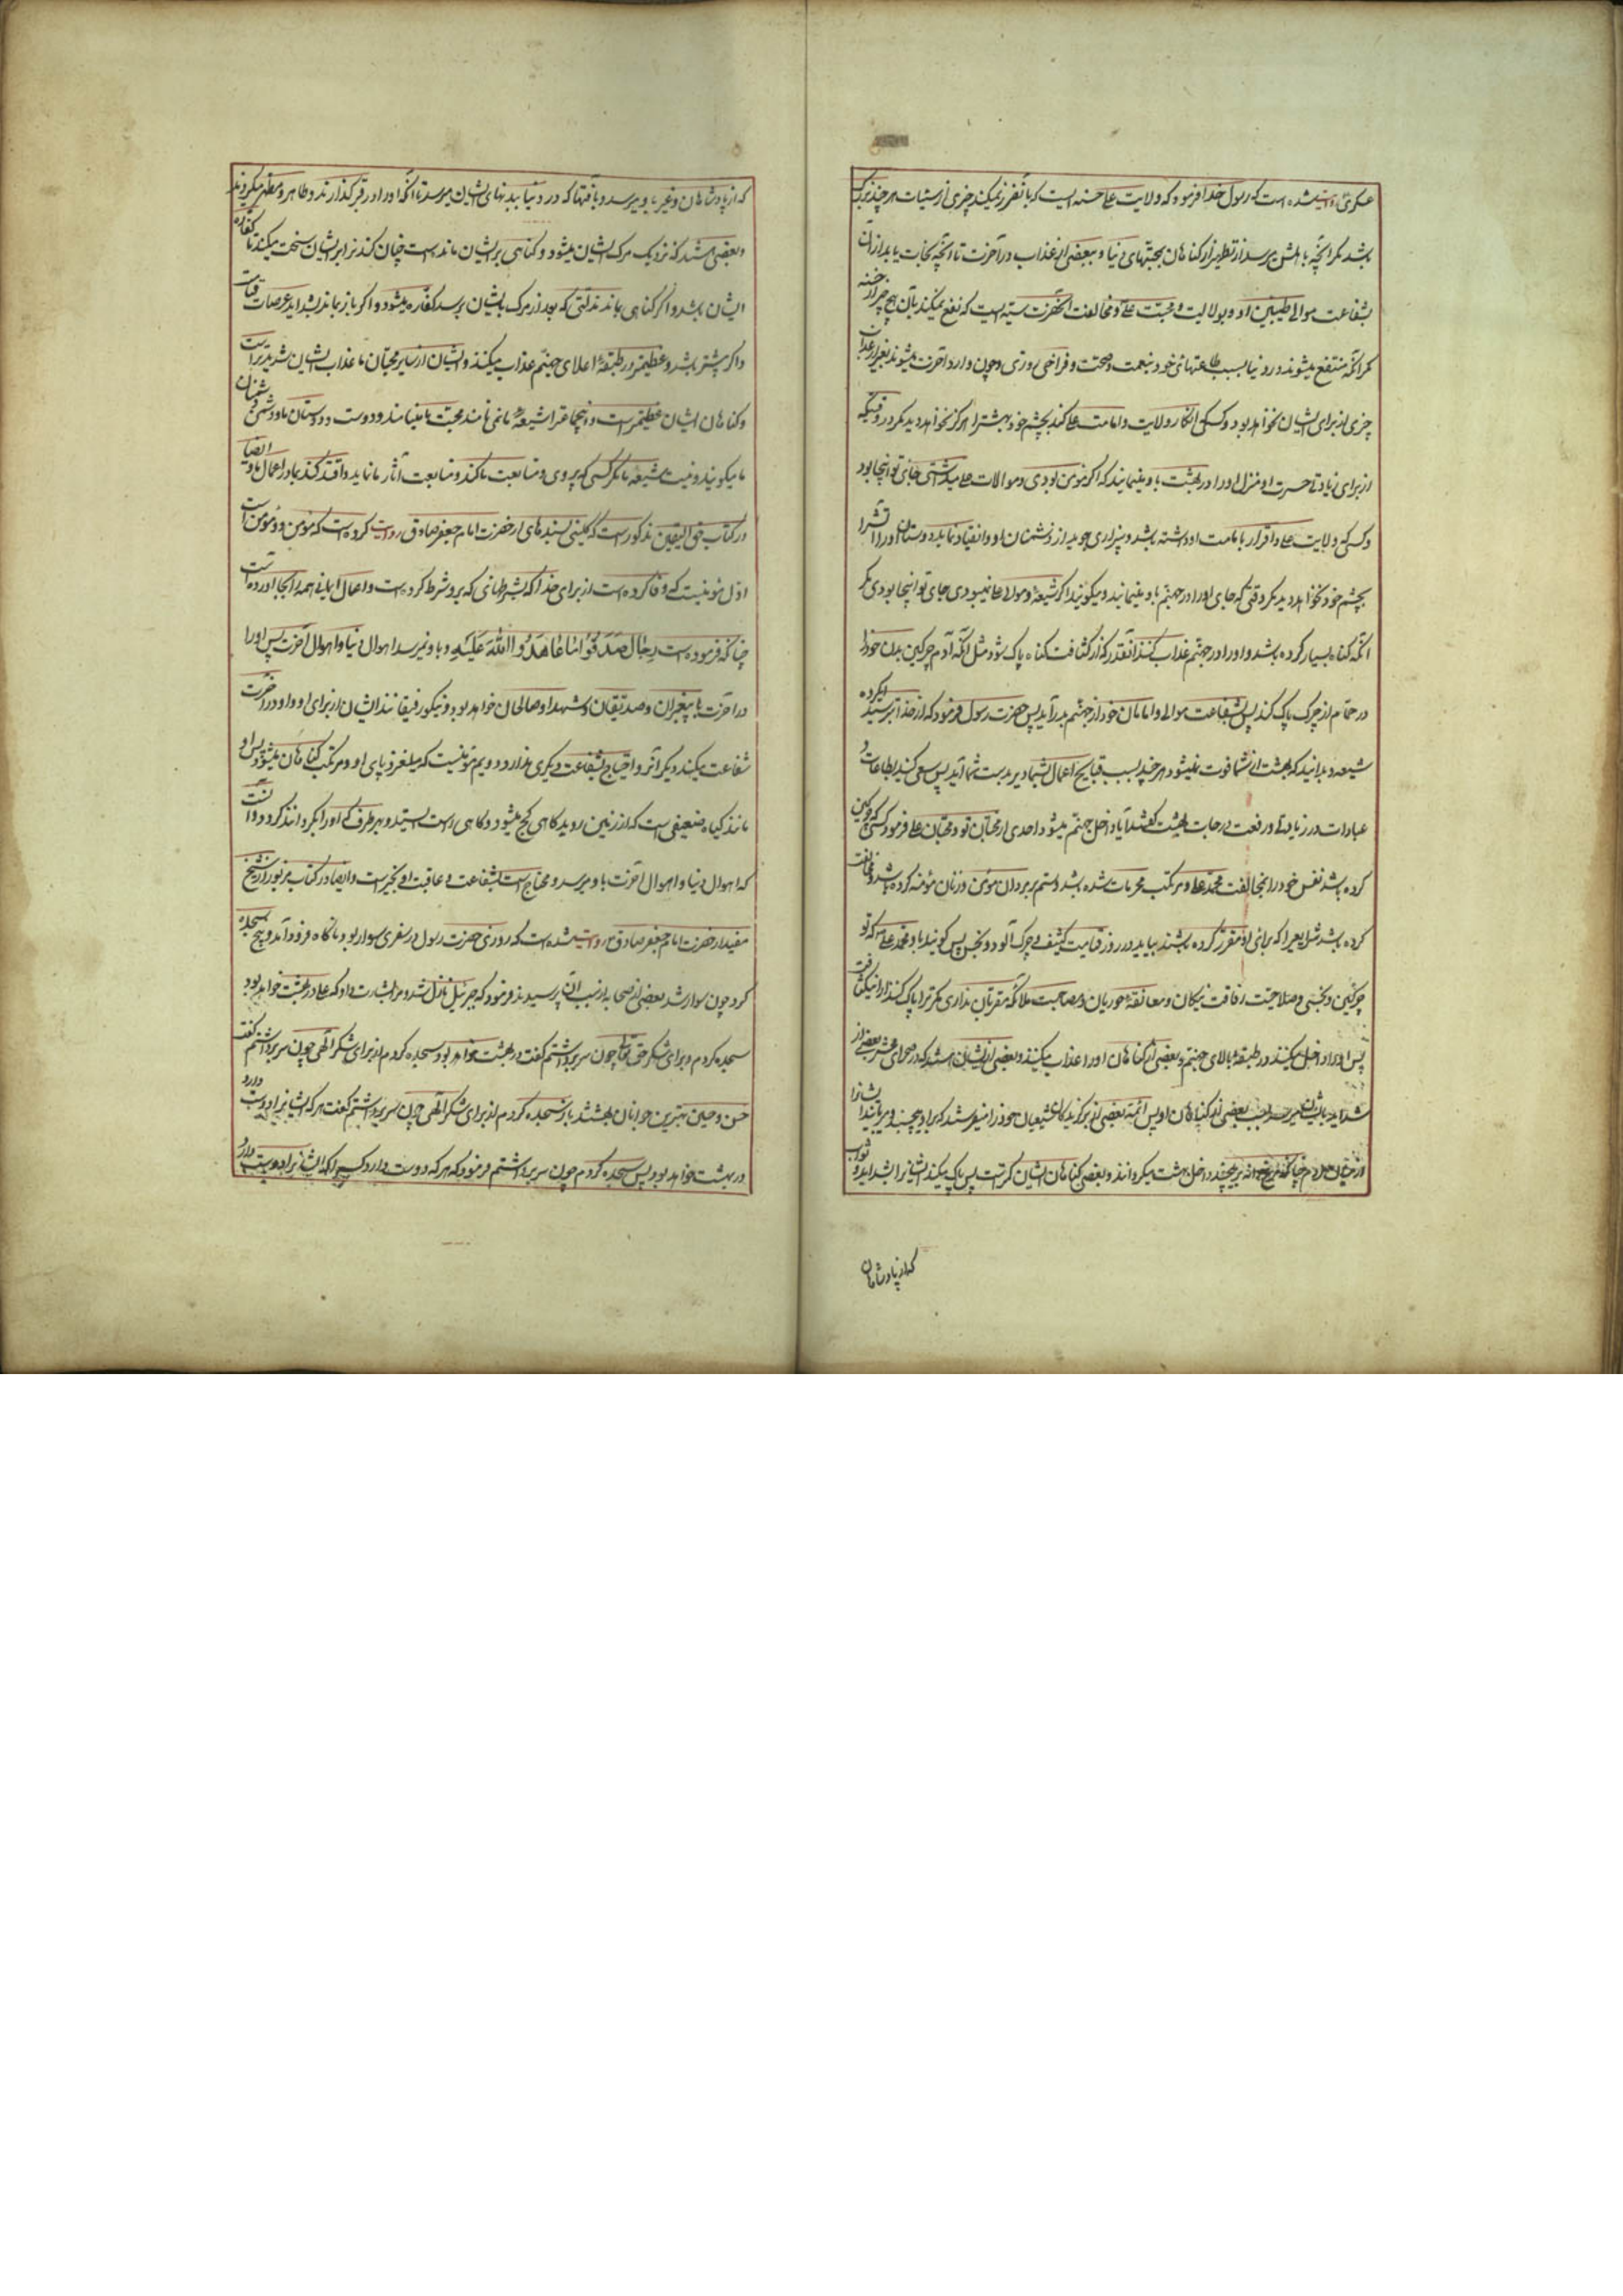 عسکری روایت شده است که رسول خدا فرمود که ولایت علی حسنه ایست که با آن ضرر نمیکند چیزی از سیئات هر چند بزرگ
باشد مگر آنچه باهلش میرسد از تطهیر از گناهان بمحنتهای دنیا و ببعضی از عذاب در آخرت تا آنکه نجات یابد از آن
بشفاعت موالی طیبین او و بولایت و محبت علی و مخالفت آنحضرت سیئه ایست که نفع نمیکند بآن هیچ چیز از حسنه
مگر آنکه منتفع میشوند در دنیا بسبب طاعتهای خود بنعمت و صحت و فراخی روزی و چون وارد آخرت میشوند بغیر از عذاب
چیزی از برای ایشان نخواهد بود و کسی که انکار ولایت و امامت علی کند بچشم خود بهشت را هرگز نخواهد دید مگر در وقتیکه
از برای زیادتی حسرت او منزل او را در بهشت باو بنمایند که اگر مؤمن بودی و موالات علی میداشتی جای تو اینجا بود
و کسی که ولایت علی و اقرار بامامت او داشته باشد و بیزاری جوید از دشمنان او و انقیاد نماید دوستان او را آتش را
بچشم خود نخواهد دید مگر وقتی که جای او را در جهنم باو بنمایند و میگویند اگر شیعه و مولای علی نمیبودی جای تو اینجا بودی مگر
آنکه گناه بسیار کرده باشد و او را در جهنم عذاب کنند آنقدر که از کثافت گناه پاک شود مثل آنکه آدم چرکین بدن خود را
در حمام از چرک پاک کند پس بشفاعت موالی و امامان خود از جهنم بدر آید پس حضرت رسول فرمود که از خدا بترسید ای گروه
شیعه و بدانید که بهشت از شما فوت نمیشود هر چند بسبب قبایح اعمال شما دیر بدست شما آید پس سعی کنید بطاعات و
عبادات در زیادتی و رفعت درجات بهشت گفتند آیا داخل جهنم میشود احدی از محبان تو و محبان علی فرمود کسی که چرکین
کرده باشد نفس خود را بمخالفت محمد و علی و مرتکب محرمات شده باشد و ستم بر مردان مؤمن و زنان مؤمنه کرده باشد و مخالفت
کرده باشد شرایعی را که برای او مقرر کرده باشند بیاید در روز قیامت کثیف و چرک آلود و نجس پس گویند باو محمد و علی که تو
چرکین و نجسی و صلاحیت رفاقت نیکان و معانقه حوریان و مصاحبت ملائکه مقربان نداری مگر ترا پاک کنند از این کثافت
پس او را داخل میکنند در طبقه بالای جهنم و ببعضی از گناهان او را عذاب میکنند و بعضی از ایشان باشند که در صحرای محشر بعضی از
شداید بایشان میرسد بسبب بعضی از گناهان او پس ائمه بعضی از برگزیدگان شیعیان خود را میفرستند که بر او میچینند و میربایند ایشانرا
از میان مردم چنانکه مرغ دانه برچیند داخل بهشت میگردانند و بعضی گناهان ایشان کمتر است پس پاک میکنند ایشانرا بشداید و نوایب
که از پادشاهان
که از پادشاهان و غیر باو میرسد و بآفتها که در دنیا ببدنهای ایشان میرسد تا آنکه او را در قبر گذارند و طاهر و مطهر میگردند
و بعضی باشند که نزدیک مرگ ایشان میشود و گناهی بر ایشان مانده است جان کندن را بر ایشان سخت میکنند تا کفاره
ایشان باشد و اگر گناهی بماند مذلتی که بعد از مرگ بایشان برسد کفاره میشود و اگر باز بماند بشداید عرصات قیامت
و اگر بیشتر باشد و عظیم‌تر در طبقه اعلای جهنم عذاب میکنند و ایشان از سایر محبان ما عذاب ایشان شدیدتر است
و گناهان ایشان عظیمتر است و اینجماعت را شیعه ما نمی نامند محبت ما مینامند و دوست دوستان ما و دشمن دشمنان
ما میگویند و نیست شیعه ما مگر کسی که پیروی و متابعت ما کند و متابعت آثار ما نماید و اقتدا کند بما در اعمال ما و ایضا
در کتاب حق الیقین مذکور است که کلینی بسندهای از حضرت امام جعفر صادق روایت کرده است که مؤمن دو مؤمن است
اول مؤمنیست که وفا کرده است از برای خدا بشرطهائی که بر او شرط کرده است و اعمال ایمانی همه را بجا آورده است
چنانکه فرموده است رِجَالٌ صَدَقُوا مَا عَاهَدُوا اللهَ عَلَیْهِ و باو نمیرسد اهوال دنیا و اهوال آخرت پس او را
در آخرت با پیغمبران و صدیقان و شهدا و صالحان خواهد بود و نیکو رفیقانند ایشان از برای او و او در آخرت
شفاعت میکند دیگرانرا و احتیاج بشفاعت دیگری ندارد و دویم مؤمنیست که میلغزد پای او و مرتکب گناهان میشود پس او
مانند گیاه ضعیفی است که از زمین روید گاهی کج میشود و گاهی راست ایستد و بهر طرف که او را بگرداند گردد و این است
که اهوال دنیا و اهوال آخرت باو میرسد و محتاج است بشفاعت و عاقبت او بخیر است و ایضا در کتاب مزبور از شیخ
مفید از حضرت امام جعفر صادق روایت شده است که روزی حضرت رسول در سفری سوار بود ناگاه فرود آمد و پنج سجده
کرد چون سوار شد بعضی از صحابه از سبب آن پرسیدند فرمود که جبرئیل نازل شد و مرا بشارت داد که علی در بهشت خواهد بود
سجده کردم برای شکر حق تعالی چون سر برداشتم گفت در بهشت خواهد بود سجده کردم از برای شکر الهی چون سر برداشتم گفت
حسن و حسین بهترین جوانان بهشتند باز سجده کردم از برای شکر الهی چون سر برداشتم گفت هر که ایشانرا دوست دارد
در بهشت خواهد بود پس سجده کردم چون سر برداشتم فرمود که هر که دوست دارد کسی را که ایشانرا دوست دارد